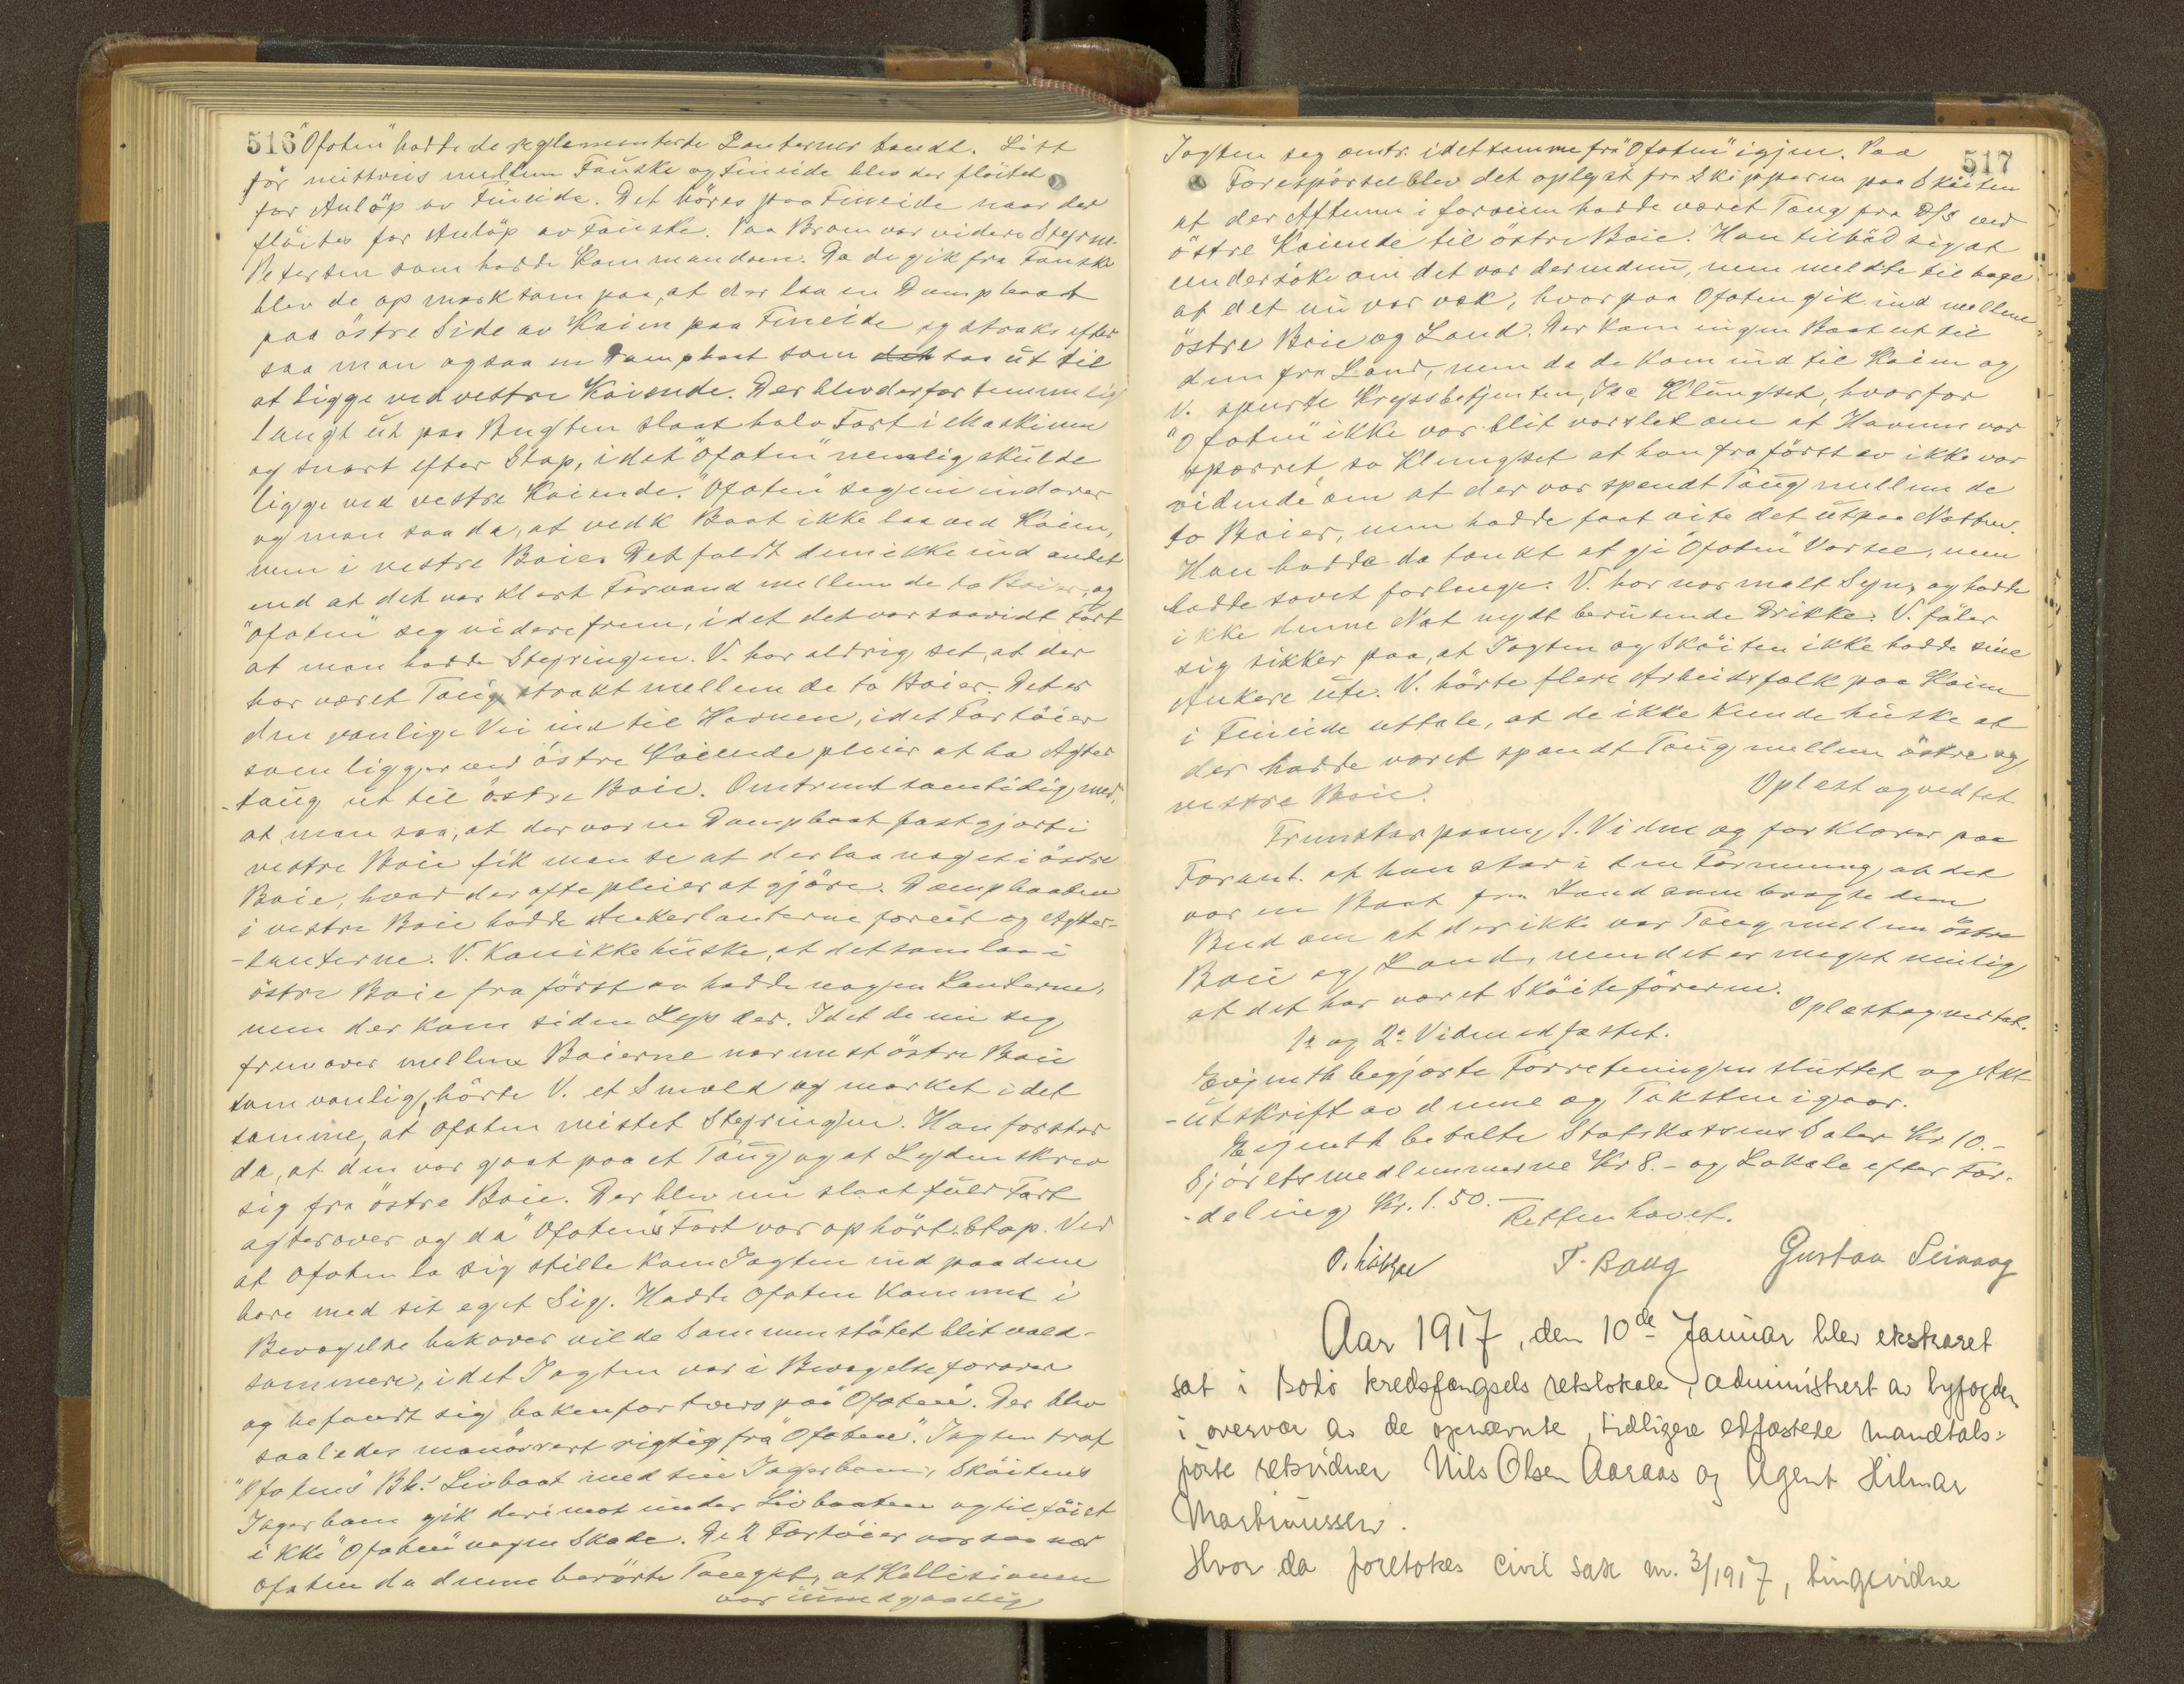 516 "Ofoten" hadde de reglementerte Lanterner tendt. Litt
før midtveis mellem Fauske og Fineide blev der fløitet
for Anløp av Fineide. Det høres paa Fineide naar der
fløites for Anløp av Fauske. Paa Broen var videre Styrm.
Petersen som hadde Kommandoen. Da de gik fra Fauske
blev de opmerksom paa, at der laa en Dampbaat
paa østre Side av Kaien paa Fineide og straks efter
saa man ogsaa en Dampbaat som saa ut til
at ligge ved vestre Kaiende. Der blev derfor temmelig
langt ut paa Bugten slaat halv Fart i Maskinen
og snart efter Stop, idet "Ofoten" nemlig skulde
ligge ved vestre Kaiende. "Ofoten" seg ind indover
og man saa da, at vedk Baat ikke laa ved Kaien,
men i vestre Boie. Det faldt dem ikke ind andet
end at det var klart Farvand mellem de to Boier, og
"Ofoten" seg videre frem, idet det var saavidt Fart
at man hadde Styringen. V. har aldrig set, at der
har været Taug strakt mellem de to Boier. Det er
den vanlige Vei ind til Havnen, idet Fartøier
som ligger ved østre Kaiende pleier at ha Agter-
-taug ut til østre Boie. Omtrent samtidig med,
at man saa, at der var en Dampbaat fastgjort i
vestre Boie fik man se at der laa noget i østre
Boie, hvad der ofte pleier at gjøre. Dampbaaten
i vestre Boie hadde Ankerlanterne forut og Agter-
-lanterne. V. kan ikke huske, at det som laa i
østre Boie fra først av hadde nogen Lanterne,
men der kom siden Lys der. Idet de nu seg
fremover mellem Boierne nærmest østre Boie
som vanlig, hørte V. et Smæld og merket i det
samme, at Ofoten mistet Styringen. Han forstod
da, at den var gaat paa et Taug og at Lyden skrev
sig fra østre Boie. Der blev nu slaat fuld Fart
agterover og da "Ofoten's" Fart var ophørt Stop. Ved
at Ofoten la sig stille kom Jagten ind paa den
bare med sit eget Sig. Hadde Ofoten kommet i
Bevægelse bakover vilde Sammenstøtet blit vold-
sommere, idet Jagten var i Bevægelse forover
og befandt sig bakenfor tvers paa "Ofoten". Der blev
saaledes manøvrert rigtig fra "Ofoten". Jagten traf
"Ofotens" Bb. Livbaat med sin Jagerbom, Skøitens
Jagerbom gik derimot under Livbaaten og tilføiet
ikke "Ofoten" nogen Skade. De 2 Fartøier var saa nær
Ofoten da denne berørte Tauget, at Kollisionen
var uundgaaelig
517
Jagten seg omtr. i det samme fra "Ofoten" igjen. Paa
Forespørsel blev det oplyst fra Skipperen paa Skøiten
at der Aftenen i forveien hadde været Taug fra D/S ved
østre Kaiende til østre Boie. Han tilbød sig at
undersøke om det var der endnu, men meldte tilbage
at det nu var væk, hvorpaa Ofoten gik ind mellem
østre Boie og Land. Der kom ingen Baat ut til
dem fra Land, men da de kom ind til Kaien og
V. spurte Krydsbetjenten, Klungset, hvorfor
"Ofoten" ikke var blit varslet om at Havnen var
sperret sa Klungset at han fra først av ikke var
vidende om at der var spendt Taug mellem de
to Boier, men hadde faat vite det utpaa Natten.
Han hadde da tænkt at gi "Ofoten" Varsel, men
hadde sovet forlænge. V. har normalt Syn, og hadde
ikke denne Nat nydt berusende Drikke. V. føler
sig sikker paa, at Jagten og Skøiten ikke hadde sine
Ankere ute. V. hørte flere Arbeidsfolk paa Kaien
i Fineide uttale, at de ikke kunde huske at
der hadde været spændt Taug mellem østre og
vestre Boie. Oplest og vedtat
Fremstod paany 1. Vidne og forklarer paa
Foranl. at han staar i den Formening, at det
var en Baat fra Land som bragte dem
Bud om at der ikke var Taug mellem østre
Boie og Land, men det er meget mulig
at det har været Skøiteføreren. Oplæst og vedtat.
1ste og 2det Vidne edfæstet.
begjærte Forretningen sluttet og Akt-
-utskrift av denne og Taksten igaar.
betalte Statskassens Salær Kr. 10.-
Sjøretsmedlemmerne Kr 8.- og Lokale efter For-
-deling Kr. 1.50.- Retten hævet.
T. Baug Gustav Seivaag
Aar 1917, den 10de Januar blev ekstraret
sat i Bodø kredsfængsels retslokale, administrert av byfogden
i overvær av de opnævnte, tidligere edfæstede mandtals-
førte retsvidner Nils Olsen Aaraas og Agent Hilmar
Martinussen.
Hvor da foretokes civil sak nr. 3/1917, tingsvidne